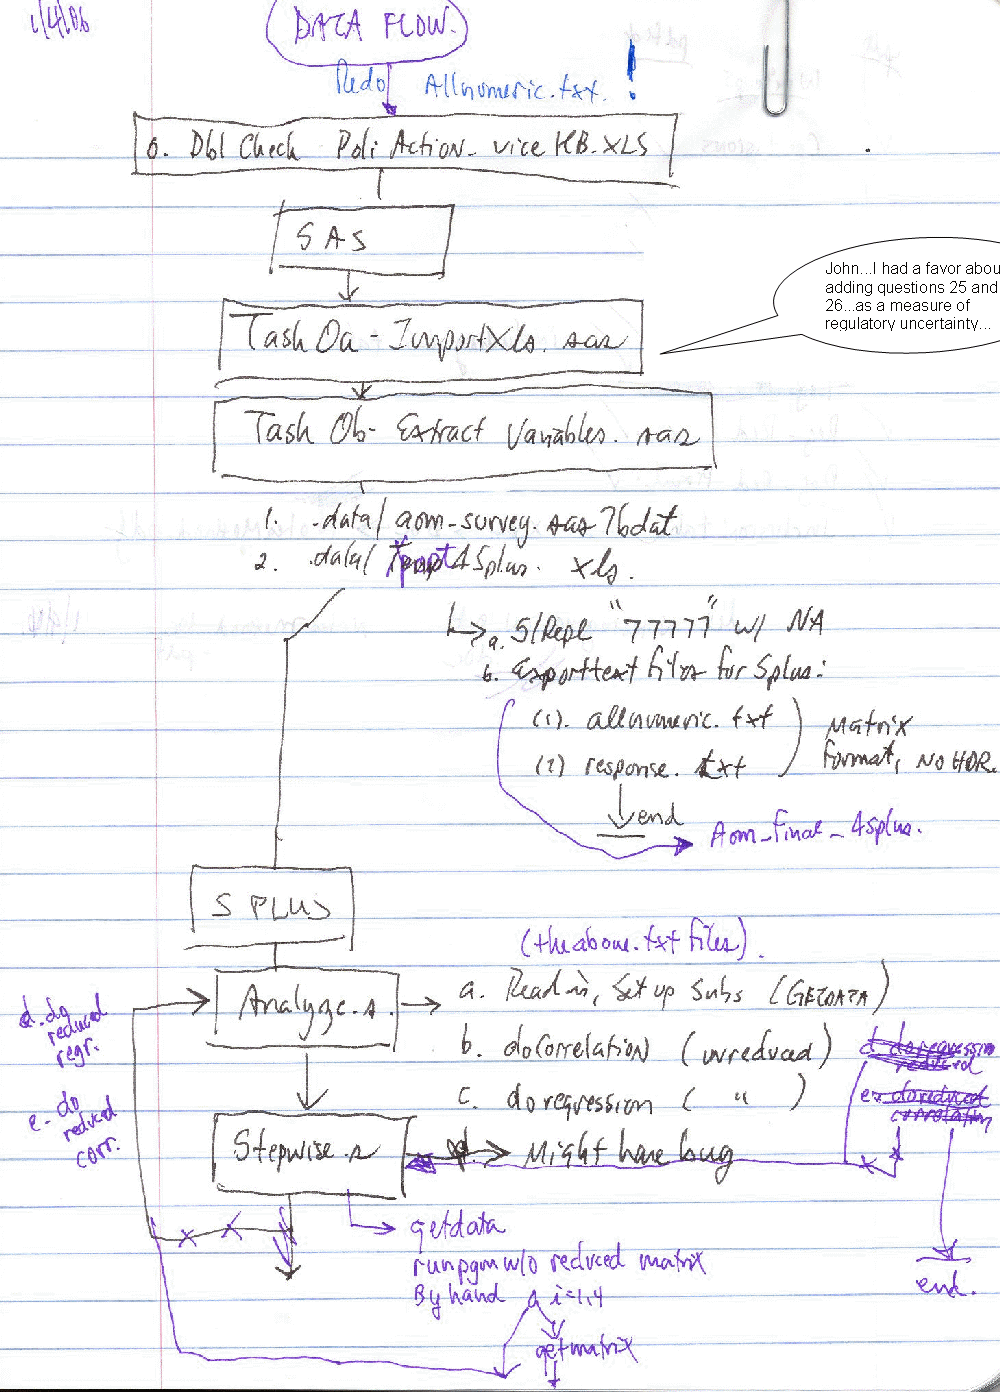 1/4/06
DATA FLOW.
Redo Allnumeric.txt. !
0. Dbl Check Poli Action_vice HB.XLS
SAS
John...I had a favor abou
adding questions 25 and
26...as a measure of
regulatory uncertainty...
Task 0a - ImportXls.sas
Task 0b - Extract Variables.sas
1. .data/aom_survey.sas7bdat
2. .data/ 4Splus. xls.
a. S/Repl "77777" w/ NA
b. Export text files for Splus:
(1). allnumeric.txt
(2) response.txt
Matrix
format, NO HDR.
end
Aom_final_4Splus.
S PLUS
(the above .txt files).
Analyze.s.
a. Read in, Set up Subs (GETDATA)
b. doCorrelation (unreduced)
c. doregression ( " )
d doregression
reduced
e. doreduced
correlation
d. do
reduced
regr.
e - do
reduced
corr.
Stepwise.s
Might have bug
getdata
run pgm w/o reduced matrix
By hand a i=1,4
getmatrix
end.